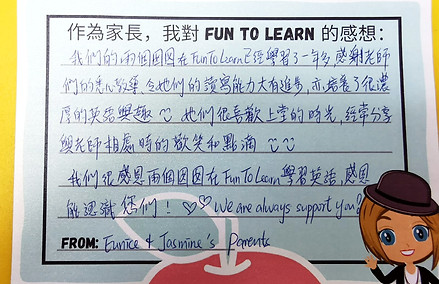 作為家長，我對 FUN TO LEARN 的感想：
我們的兩個囡囡在Fun To Learn已經學習了一年多，感謝老師
們的悉心教導，令她們的讀寫能力大有進步，亦培養了很濃
厚的英語興趣 她們很喜歡上堂的時光，經常分享
與老師相處時的歡笑和點滴
我們很感恩兩個囡囡在Fun To Learn學習英語，感恩
能認識您們！ We are always support you!
FROM: Eunice & Jasmine's Parents